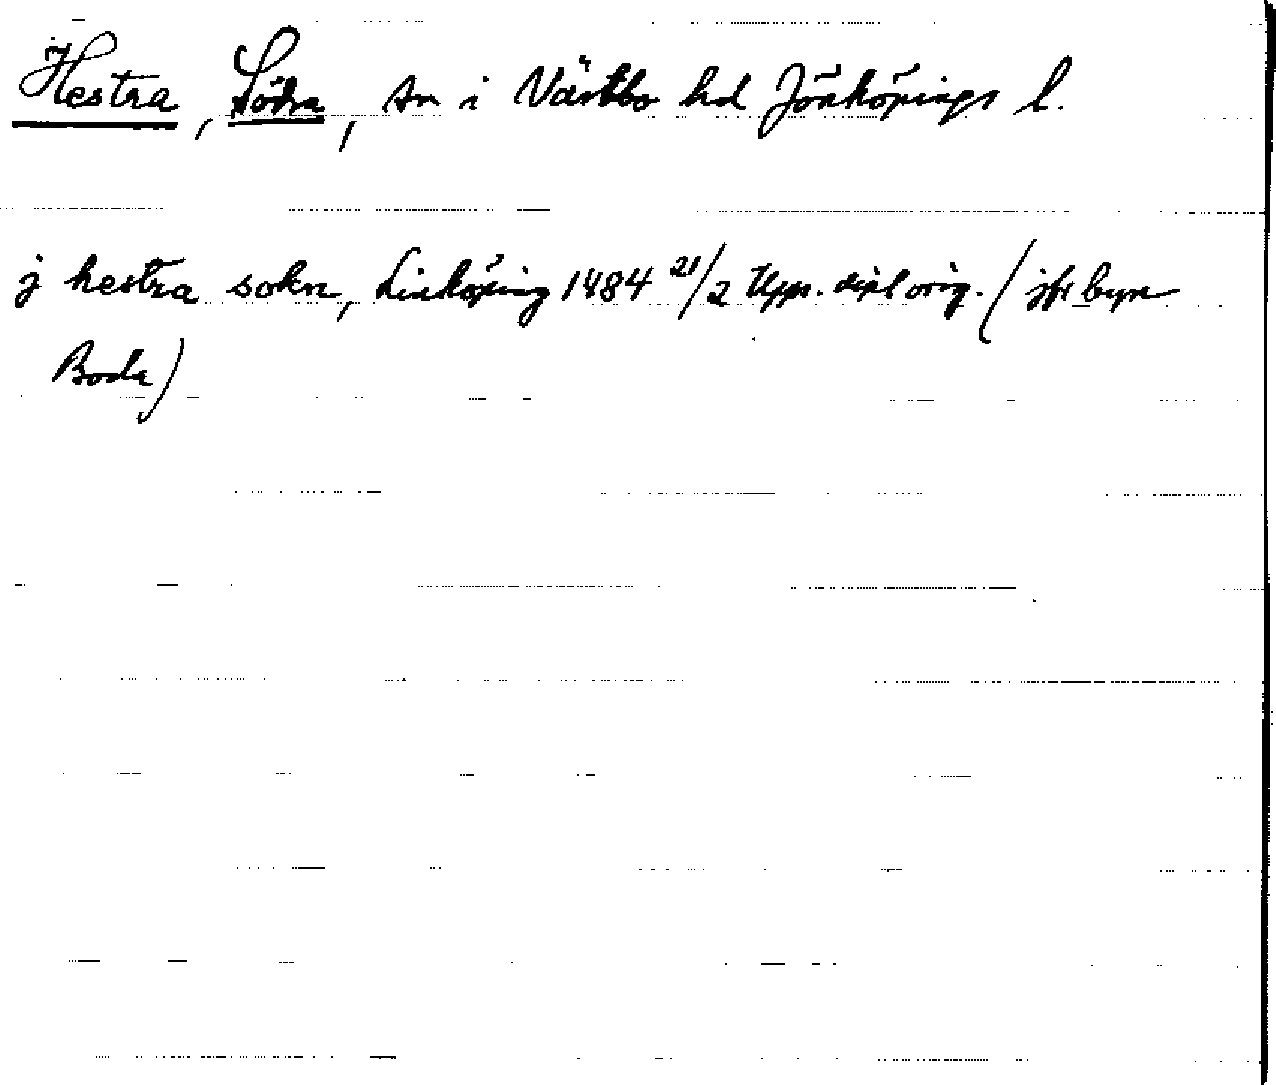 Hestra, Södra, sn i Västbo hd Jönköpings l.
j hestra sokn, Linköping 1484 21/2 Upps. dipl orig. (jfr byn
Boda)